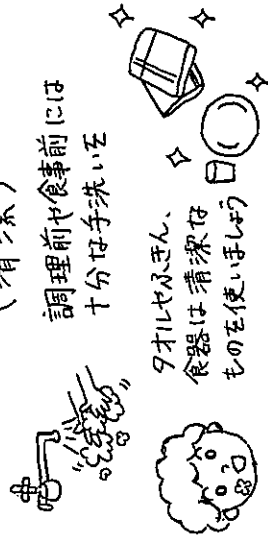 調理前や食事前には
十分な手洗いを
タオルやふきん、
食器は清潔な
ものを使いましょう